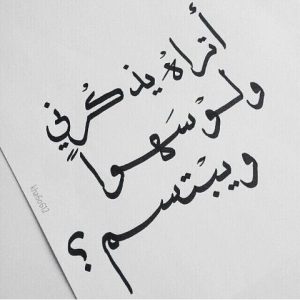 أتراهُ يذكُرني
ولوْ سَهواً
ويبْتسم ؟
khafisi612